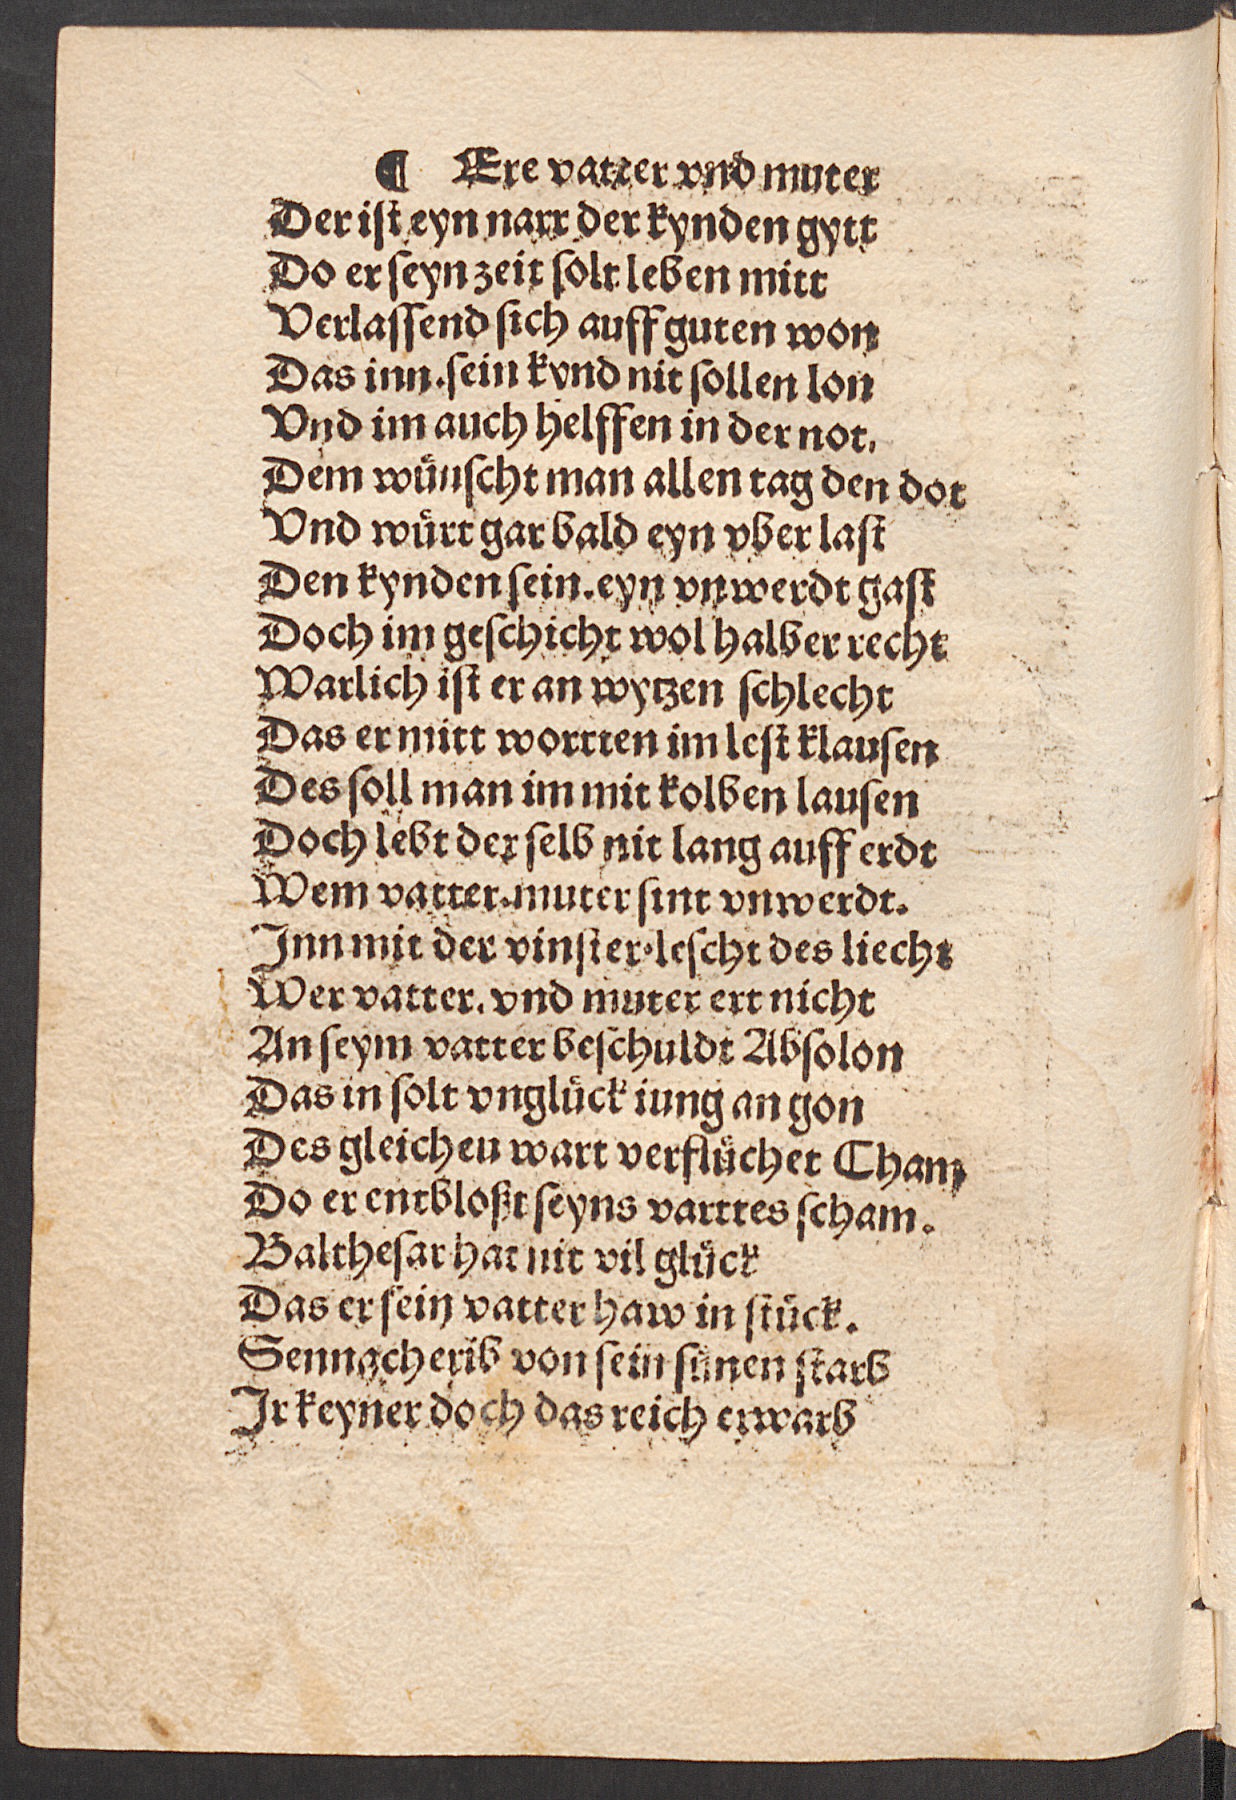 ¶ Ere vatter vnd muter
Der ist eyn narr der kynden gytt
Do er seyn zeit solt leben mitt
Verlassend sich auff guten won
Das inn. sein kynd nit sollen lon
Vnd im auch helffen in der not.
Dem wünscht man allen tag den dot
Vnd würt gar bald eyn vber last
Den kynden sein. eyn vnwerdt gast
Doch im geschicht wol halber recht
Warlich ist er an wytzen schlecht
Das er mitt wortten im lest klausen
Des soll man im mit kolben lausen
Doch lebt der selb nit lang auff erdt
Wem vatter. muter sint vnwerdt.
Inn mit der vinster. lescht des liecht
Wer vatter. vnd muter ert nicht
An seym vatter beschuldt Absolon
Das in solt vnglück iung an gon
Des gleicheu wart verflüchet Cham
Do er entbloßt seyns varttes scham.
Balthesar hat nit vil glück
Das er sein vatter haw in stück.
Sennacherib von sein sünen starb
Ir keyner doch das reich erwarb